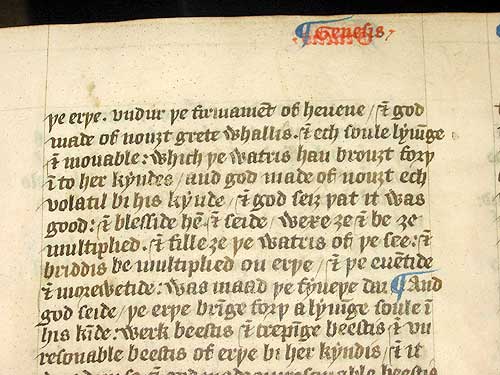 ¶ Genesis
þe erþe. vndur þe firmamēt of heuene / ⁊ god
made of nouȝt grete whallis. ⁊ ech soule lyuīge
⁊ mouable: which þe watris han brouȝt forþ
ī to her kyndes / and god made of nouȝt ech
volatil bi his kynde / ⁊ god seiȝ þat it was
good: ⁊ blesside hē. ⁊ seide / wexe ȝe ⁊ be ȝe
multiplied. ⁊ fille ȝe þe watris of þe see: ⁊
briddis be multiplied on erþe / ⁊ þe euētide
⁊ morewetide: was maad þe fyueþe dai ¶ And
god seide / þe erþe brīge forþ a lyuīge soule ī
his kīde: werk beestis ⁊ crepīge beestis ⁊ vn
resonable beestis of erþe bi her kyndis / ⁊ it